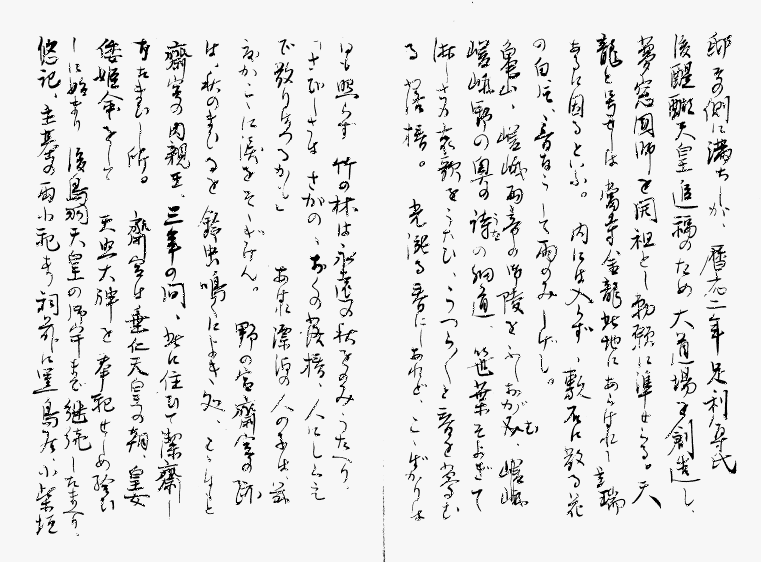 邸その側に満ちしが、暦応二年足利尊氏
後醍醐天皇追福のため大道場を創造し、
夢窓国師を開祖とし勅願に準ぜらる。天
龍と号すは当寺金龍此地にあらはれし吉瑞
あるに因るといふ。内には入らず、敷石に散る花
の白々、音なうして雨のみしげし。
亀山、嵯峨両帝の御陵をふしおがみ 嵯峨
嵯峨野の奥の詩の細道、笹葉そよぎて
淋しき哀歌をうたひ、うつら〳〵と昔を夢む
る 落梧。 光洩る春にしあれど、こゝばかりは
日も照らず 竹の林は永遠の秋をのみうたへり、
「さびしさは さがのゝおくの落梧、人にしられ
で散りまさるかも」 あはれ漂泊の人の子は茲
ゆかしさに涙をそゝぎけん。 野の宮斎宮の跡
は、秋のまひると 鈴虫鳴くによき処、こゝはもと
斎宮の内親王、三年の間、此に住ひて潔斎し
給ひし所。 斎宮は垂仁天皇の朝、皇女
倭姫命をして 天照大神を奉祀せしめ給ひ
しに始まり 後鳥羽天皇の御宇まで継続したまへり、
悠記、主基の両小祀あり 祠前に黒鳥居小柴垣